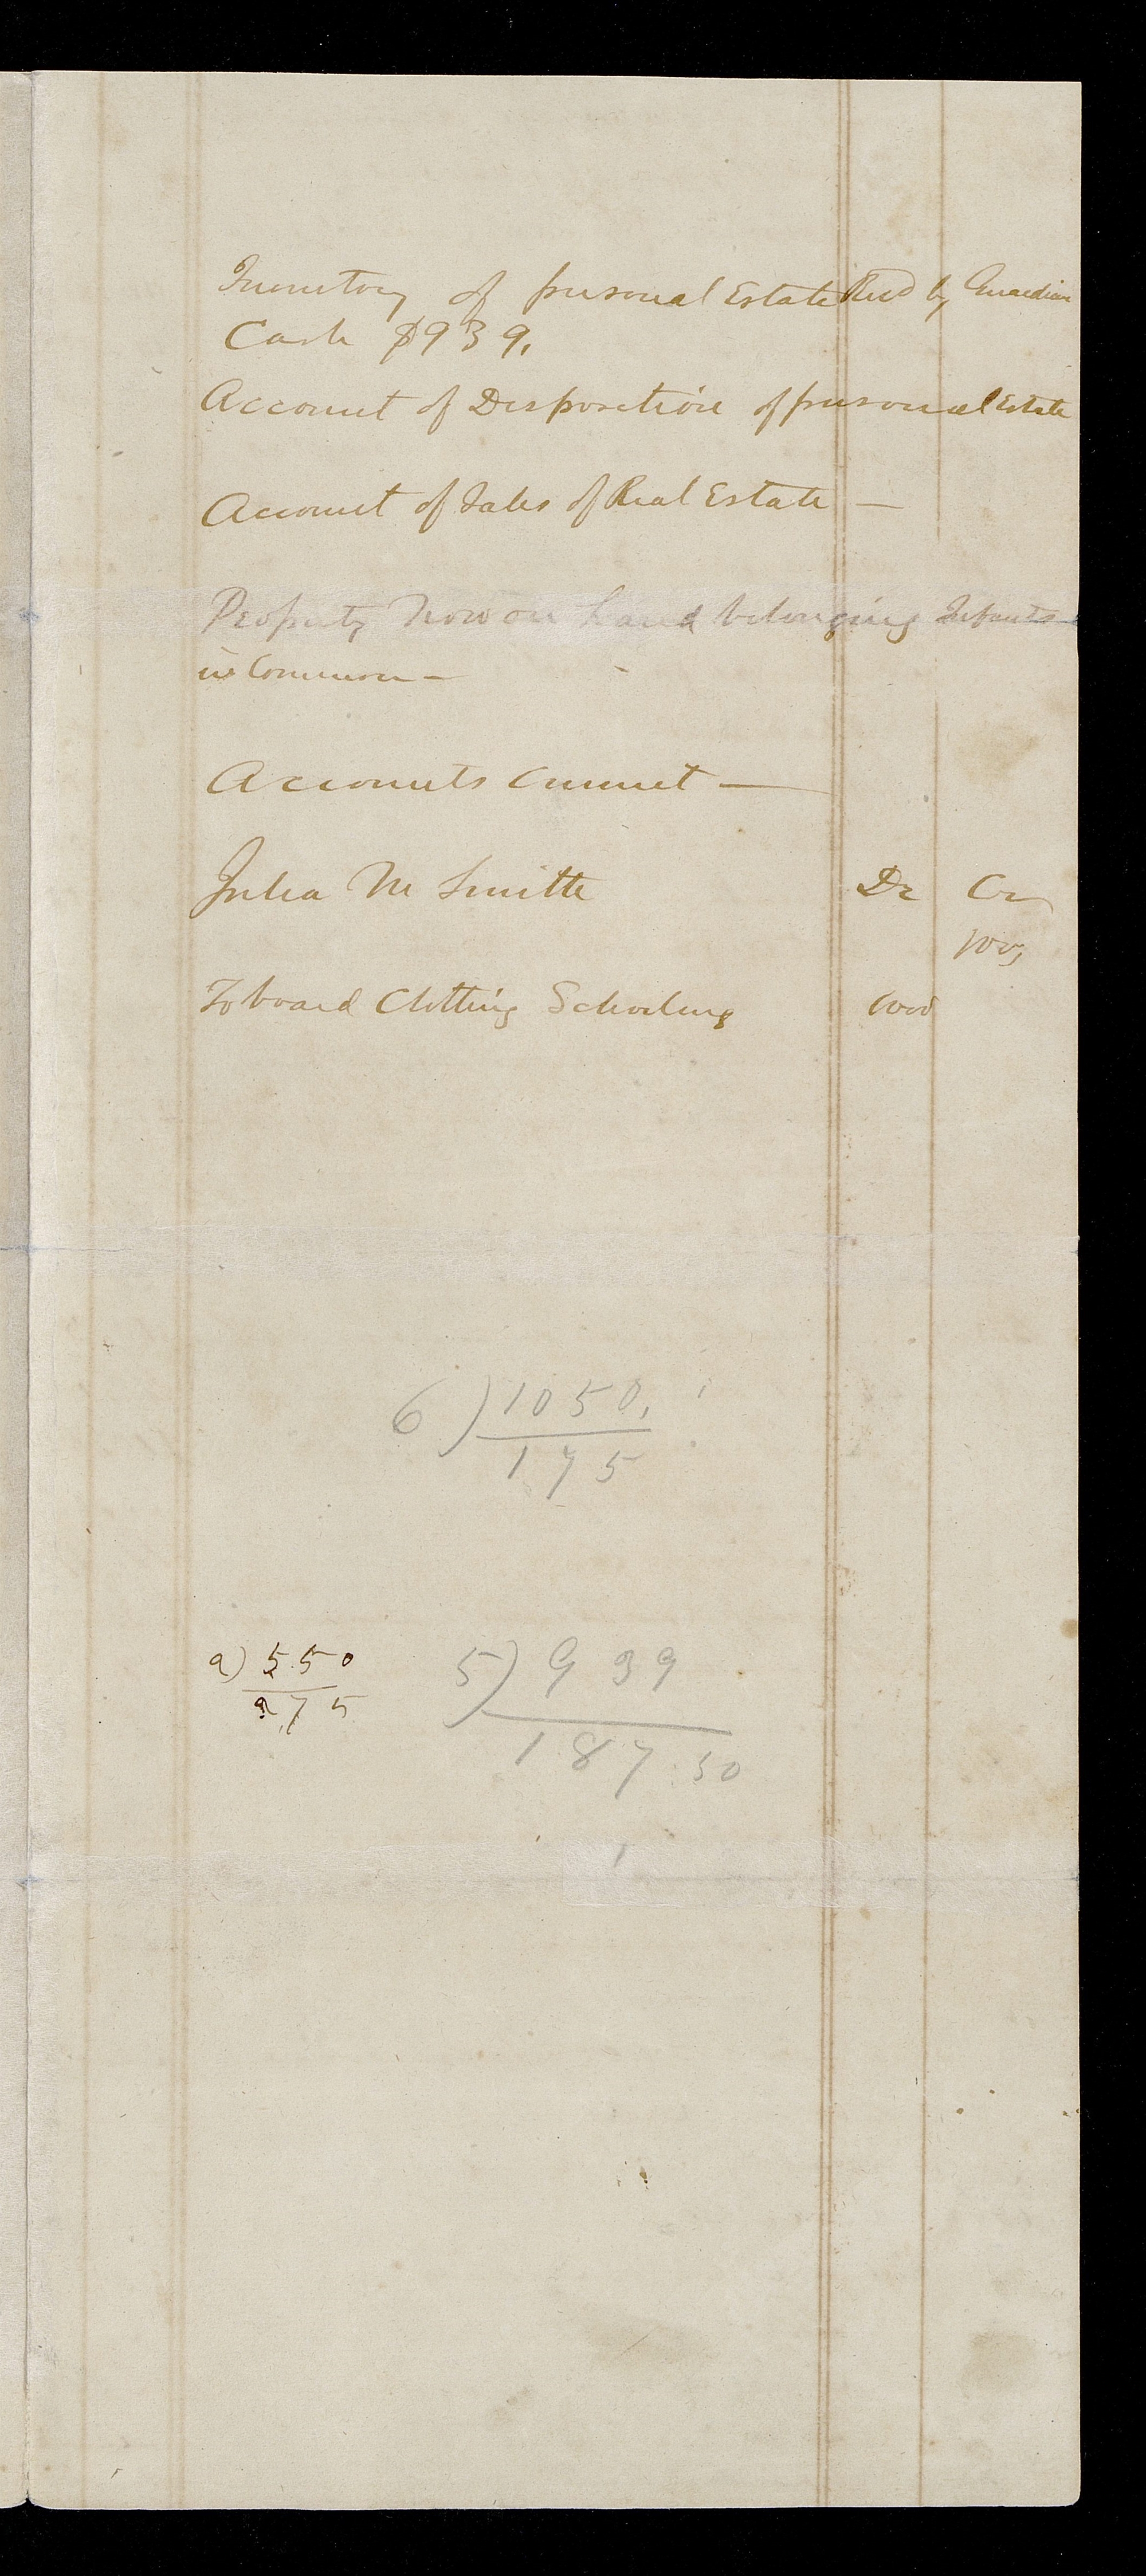 Inventory of personal Estate Recd by Guardian
Cash $939.
Account of Disposition of personal Estate
Account of Sales of Real Estate —
Property now on hand belonging Infants
in Common —
Accounts Current —
Julia M Smith Dr Cr
To board Clothing Schooling
6) 1050.
175
2) 550
275
5) 939
187.50